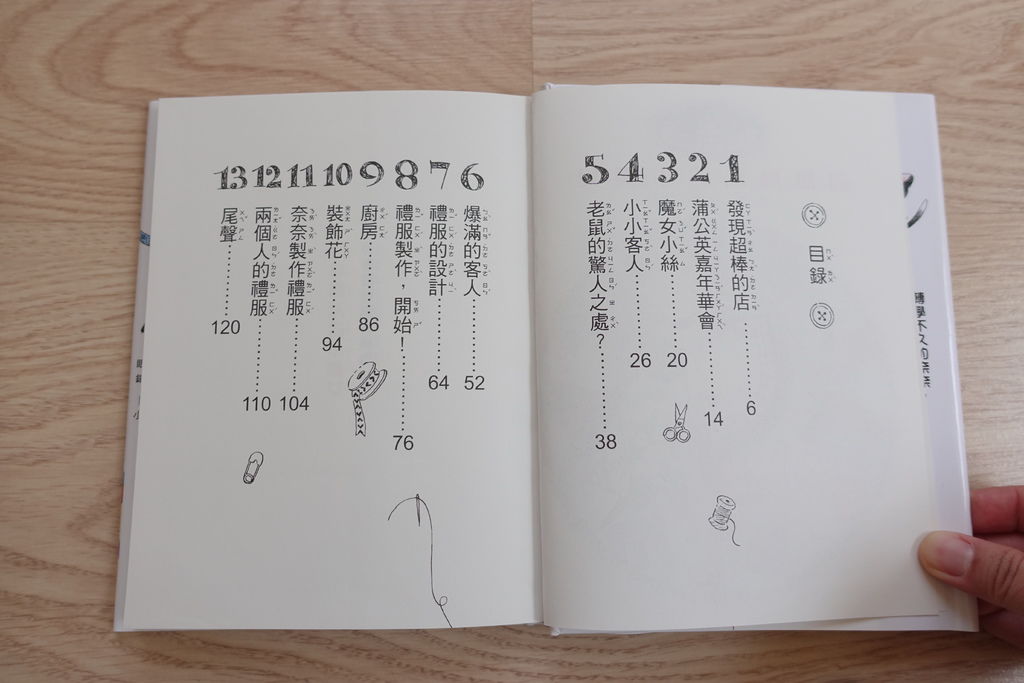 目錄
1 發現超棒的店 6
2 蒲公英嘉年華會 14
3 魔女小絲 20
4 小小客人 26
5 老鼠的驚人之處？ 38
6 爆滿的客人 52
7 禮服的設計 64
8 禮服製作，開始！ 76
9 廚房 86
10 裝飾花 94
11 奈奈製作禮服 104
12 兩個人的禮服 110
13 尾聲 120